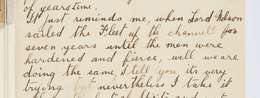 of years time.
It just reminds me, when Lord Nelson
sailed the Fleet of the channel for
seven years until the men were
hardened and fierce, well we are
doing the same, I tell you its very
trying but nevertheless I take it